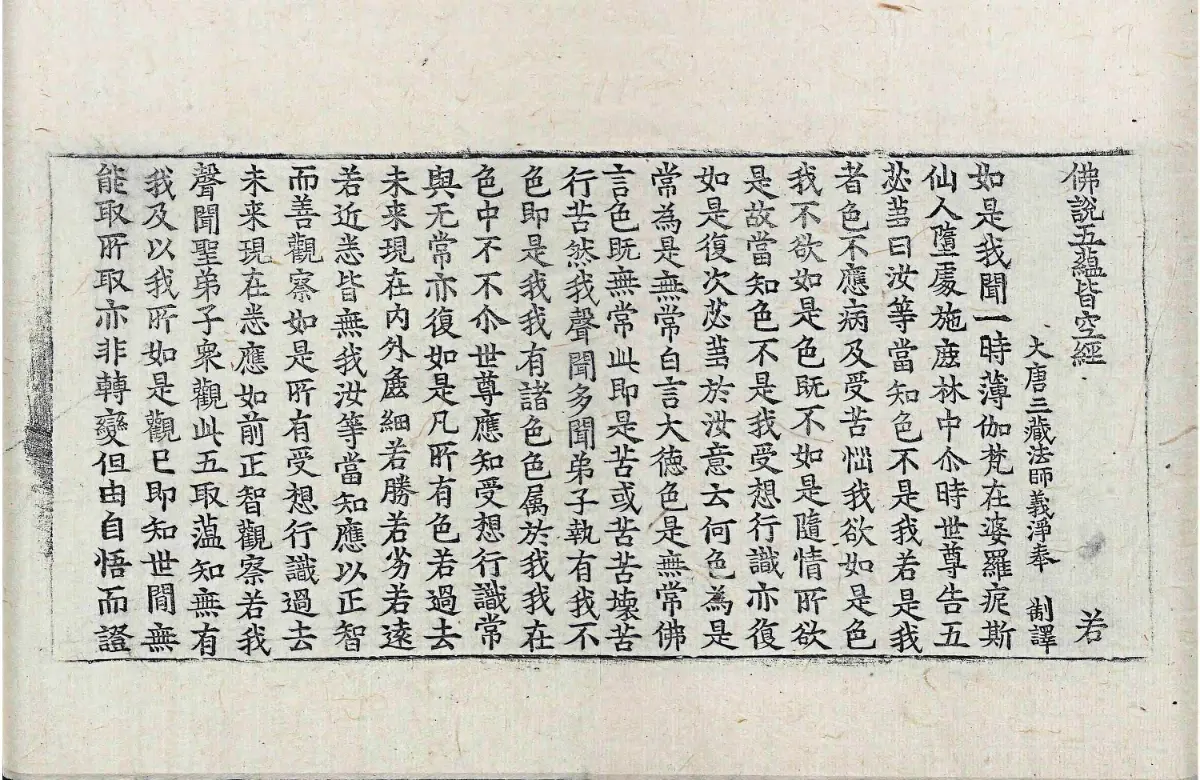 佛說五蘊皆空經 若
大唐三藏法師義淨奉 制譯
如是我聞一時薄伽梵在婆羅痆斯
仙人墮處施鹿林中尒時世尊告五
苾芻曰汝等當知色不是我若是我
者色不應病及受苦惱我欲如是色
我不欲如是色既不如是隨情所欲
是故當知色不是我受想行識亦復
如是復次苾芻於汝意云何色為是
常為是無常白言大德色是無常佛
言色既無常此即是苦或苦苦壞苦
行苦然我聲聞多聞弟子執有我不
色即是我我有諸色色属於我我在
色中不不尒世尊應知受想行識常
與无常亦復如是凡所有色若過去
未来現在內外麁細若勝若劣若遠
若近悉皆無我汝等當知應以正智
而善觀察如是所有受想行識過去
未来現在悉應如前正智觀察若我
聲聞聖弟子衆觀此五取蕰知無有
我及以我所如是觀已即知世間無
能取所取亦非轉變但由自悟而證